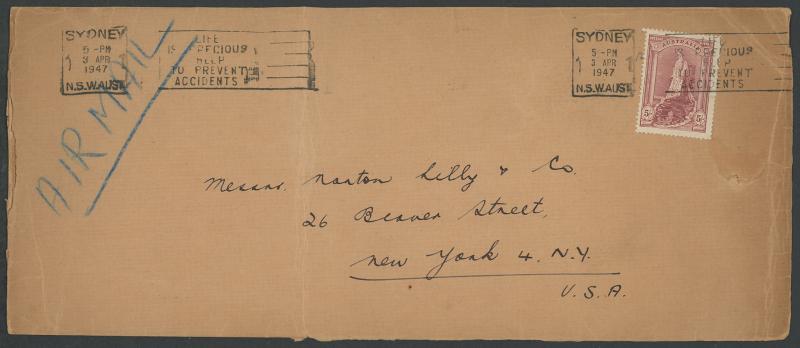 SYDNEY
5 - PM
3 APR
1947
N.S.W. AUST.
LIFE
IS PRECIOUS
HELP
TO PREVENT
ACCIDENTS
SYDNEY
5 - PM
3 APR
1947
N.S.W. AUST.
IS PRECIOUS
HELP
TO PREVENT
ACCIDENTS
AUSTRALIA
5/- 5/-
AIR MAIL
Messrs. Norton Lilly & Co.
26 Beaver Street,
New York 4. N.Y.
U.S.A.